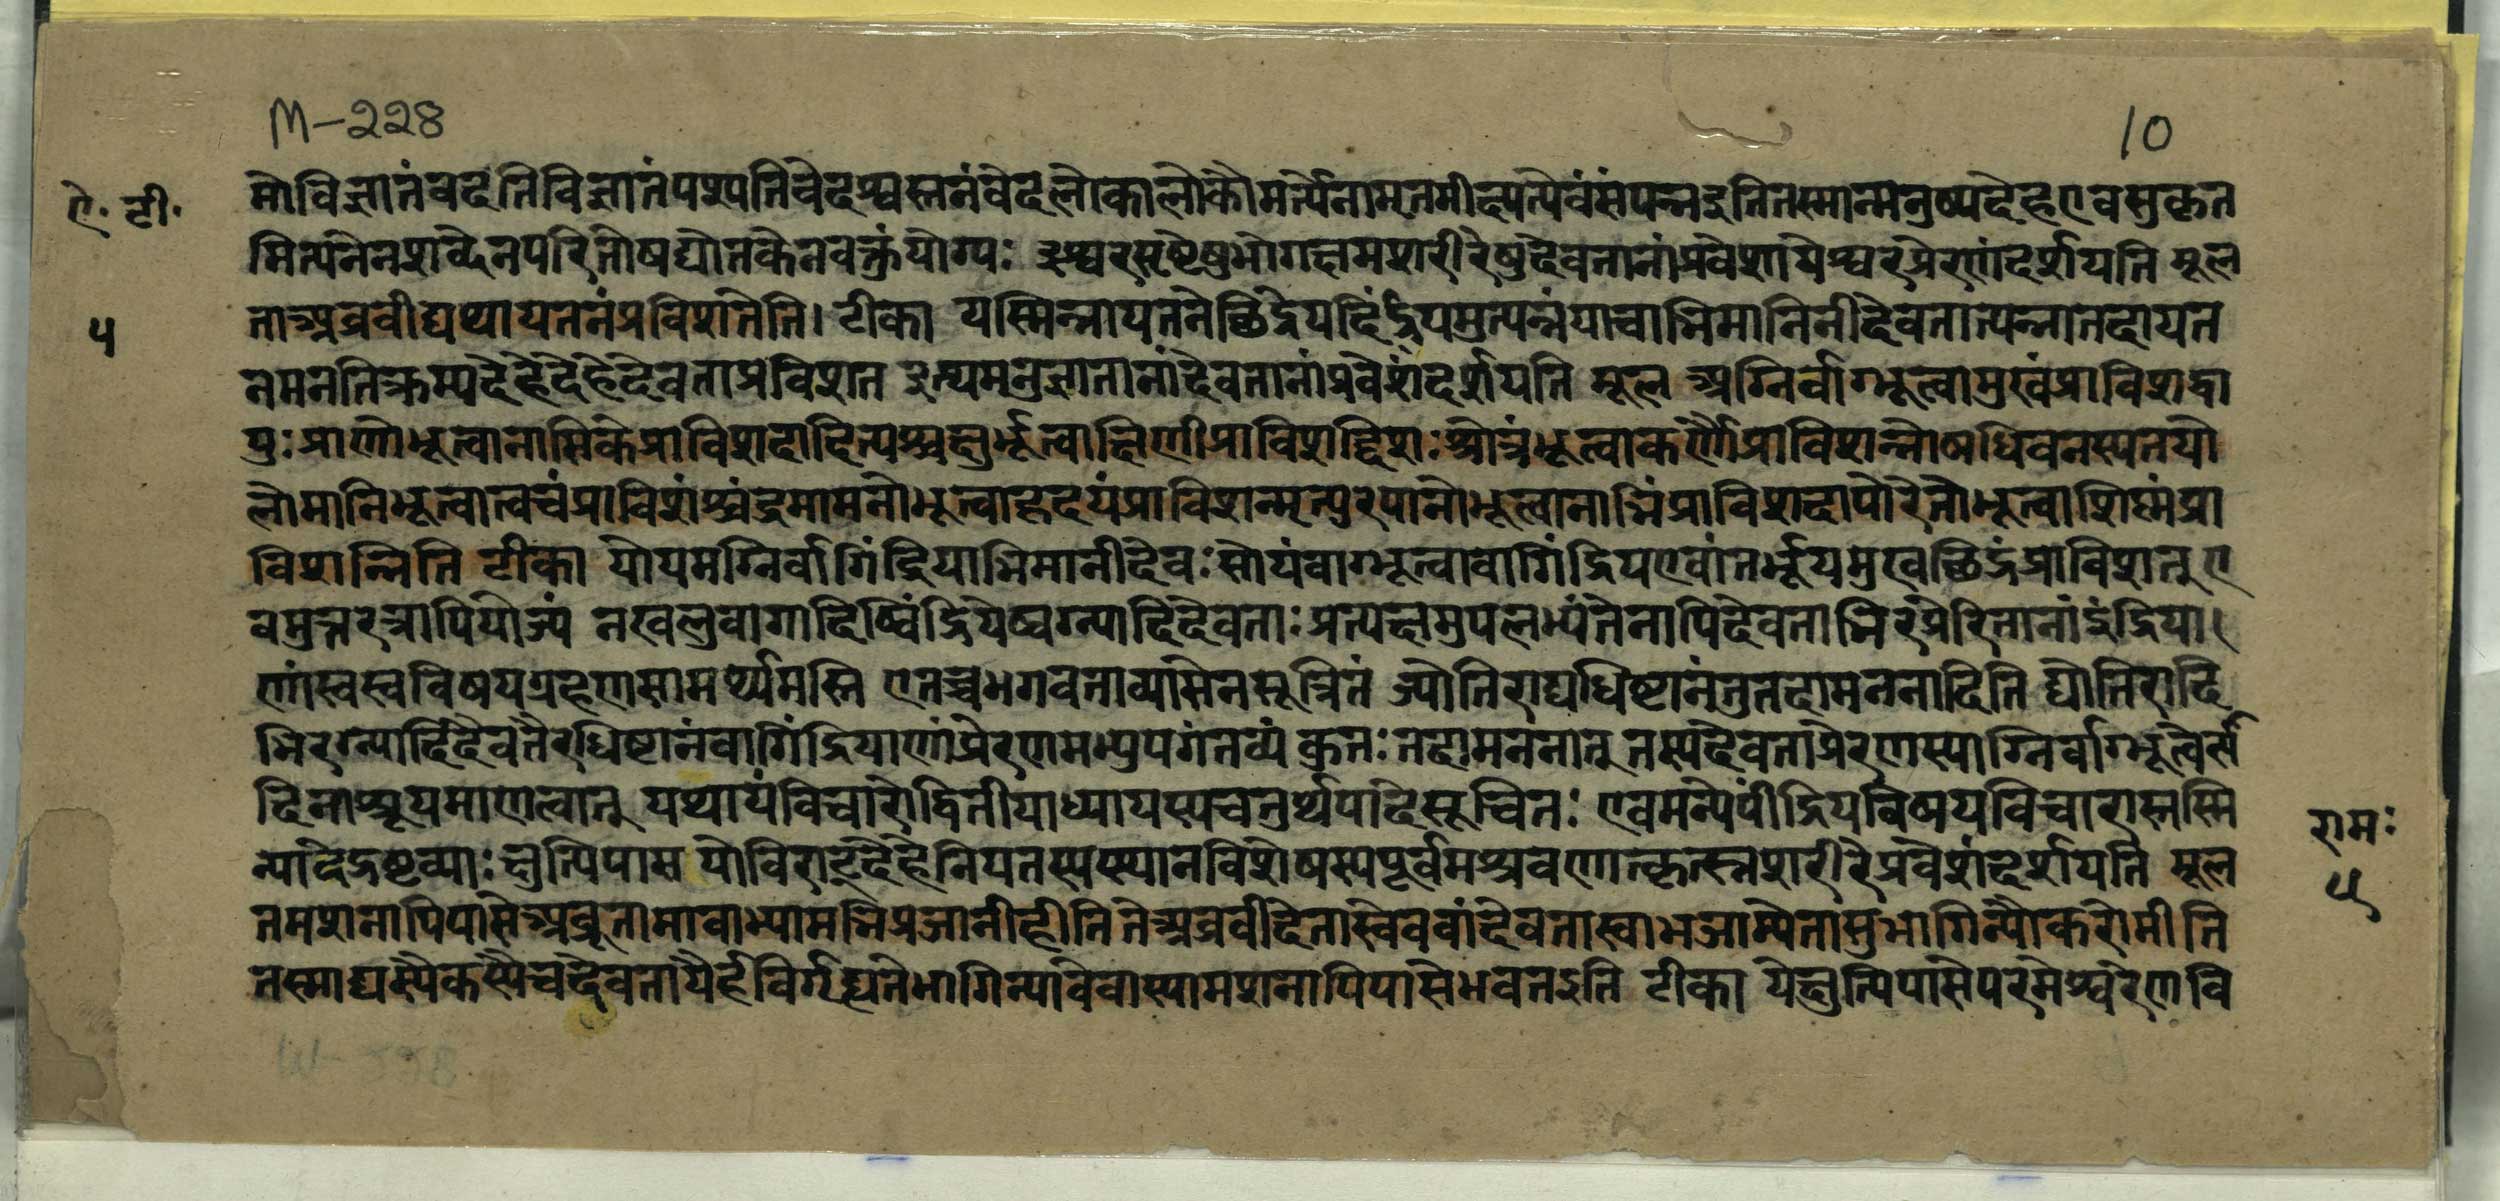 M-228
10
ऐ. टी.
५
मोविज्ञानंवदंतिविज्ञानंपश्यतिवेदश्वस्तनंवेदलोकालोकौमर्त्येनामृतमीप्सत्येवंसंपन्नइतितस्मान्मनुष्यदेहएवसुकृत
मित्यनेनशब्देनपरितोषद्योतकेनवक्तुंयोग्यः ईश्वरसृष्टेषुभोगक्षमशरीरेषुदेवतानांप्रवेशायेश्वरप्रेरणांदर्शयति मूल
ताअब्रवीद्यथायतनंप्रविशतेति। टीका यस्मिन्नायतनेछिद्रेयदिंद्रियमुत्पन्नंयाचाभिमानिनीदेवतोत्पन्नातदायत
नमनतिक्रम्यदेहेदेहेदेवताप्रविशत इत्थमनुज्ञातानांदेवतानांप्रवेशंदर्शयति मूल अग्निर्वाग्भूत्वामुखंप्राविशद्वा
युःप्राणोभूत्वानासिकेप्राविशदादित्यश्चक्षुर्भूत्वाक्षिणीप्राविशद्दिशःश्रोत्रंभूत्वाकर्णौप्राविशन्नोषधिवनस्पतयो
लोमानिभूत्वात्वचंप्राविशंश्चंद्रमामनोभूत्वाहृदयंप्राविशन्मृत्युरपानोभूत्वानाभिंप्राविशदापोरेतोभूत्वाशिश्नंप्रा
विशन्निति टीका योयमग्निर्वागिंद्रियाभिमानीदेवःसोयंवाग्भूत्वावागिंद्रियएवांतर्भूयमुखछिद्रंप्राविशत् ए
वमुत्तरत्रापियोज्यं नखलुवागादिष्विंद्रियेष्वग्न्यादिदेवताःप्रत्यक्षमुपलभ्यंतेनापिदेवताभिरप्रेरितानांइंद्रिया।
णांस्वस्वविषयग्रहणसामर्थ्यमस्ति एतच्चभगवताव्यासेनसूत्रितं ज्योतिराद्यधिष्टानंतुतदामननादिति द्योतिरादि
भिरग्न्यादिदेवतैरधिष्टानंवागिंद्रियाणांप्रेरणमभ्युपगंतव्यं कुतःतदामननात् तस्यदेवताप्रेरणस्याग्निर्वाग्भूत्वेत्या
दिनाश्रूयमाणत्वात् यथायंविचारोद्वितीयाध्यायस्यचतुर्थपादेसूचितः एवमन्येपींद्रियविषयविचारास्तस्मि
न्पादेद्रष्टव्याः क्षुत्पिपास योविराट्देहेनियतस्यस्थानविशेषस्यपूर्वमश्रवणात्कृत्स्नशरीरेप्रवेशंदर्शयति मूल
तमशनापिपासेअब्रूतामावाभ्यामभिप्रजानीहीतितेअब्रवीदेतास्वेववांदेवतास्वाभजाम्येतासुभागिन्यौकरोमीति
तस्माद्यस्यैकस्यैचदेवतायैर्हविर्गृह्यतेभागिन्यावेवास्यामशनापिपासेभवतइति टीका येक्षुत्पिपासेपरमेश्वरेणवि
रामः
५